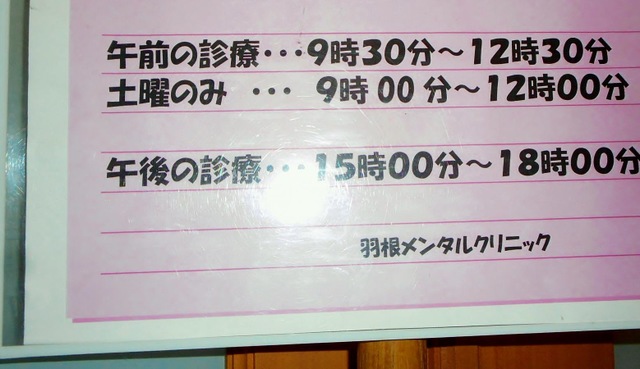 午前の診療･･･9時30分～12時30分
土曜のみ ･･･ 9時00分～12時00分
午後の診療･･･15時00分～18時00分
羽根メンタルクリニック